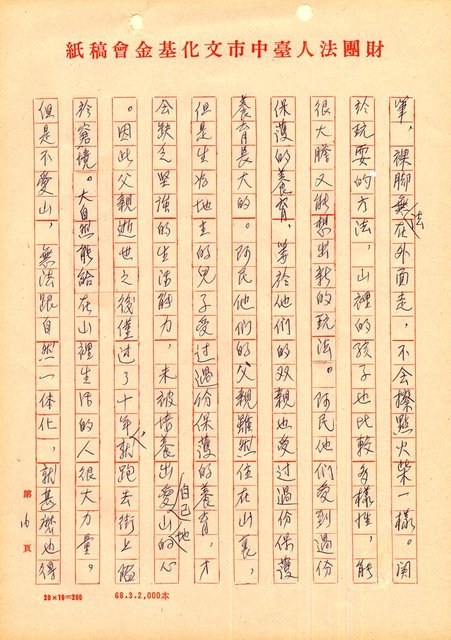 財團法人臺中市文化基金會稿紙
單，裸脚無法在外面走，不会擦點火柴一樣。関
於玩耍的方法，山裡的孩子也比較多樣性，能
很大膽又能想出新的玩法。阿民他们受到過份
保護的養育，等於他们的双親也受过過份保護
養育長大的。阿民他们的父親雖然住在山裏，
但是生为地主的兒子受过過份保護的養育，才
会缺乏坚強的生活能力，未被培養出愛自己山地的心
。因此父親逝世之後僅过了十年，就跑去街上陷
於窘境。大自然能給在山裡生活的人很大力量。
但是不爱山，無法跟自然一体化，就甚麽也得
第16頁
20×10＝200
68.3.2,000本